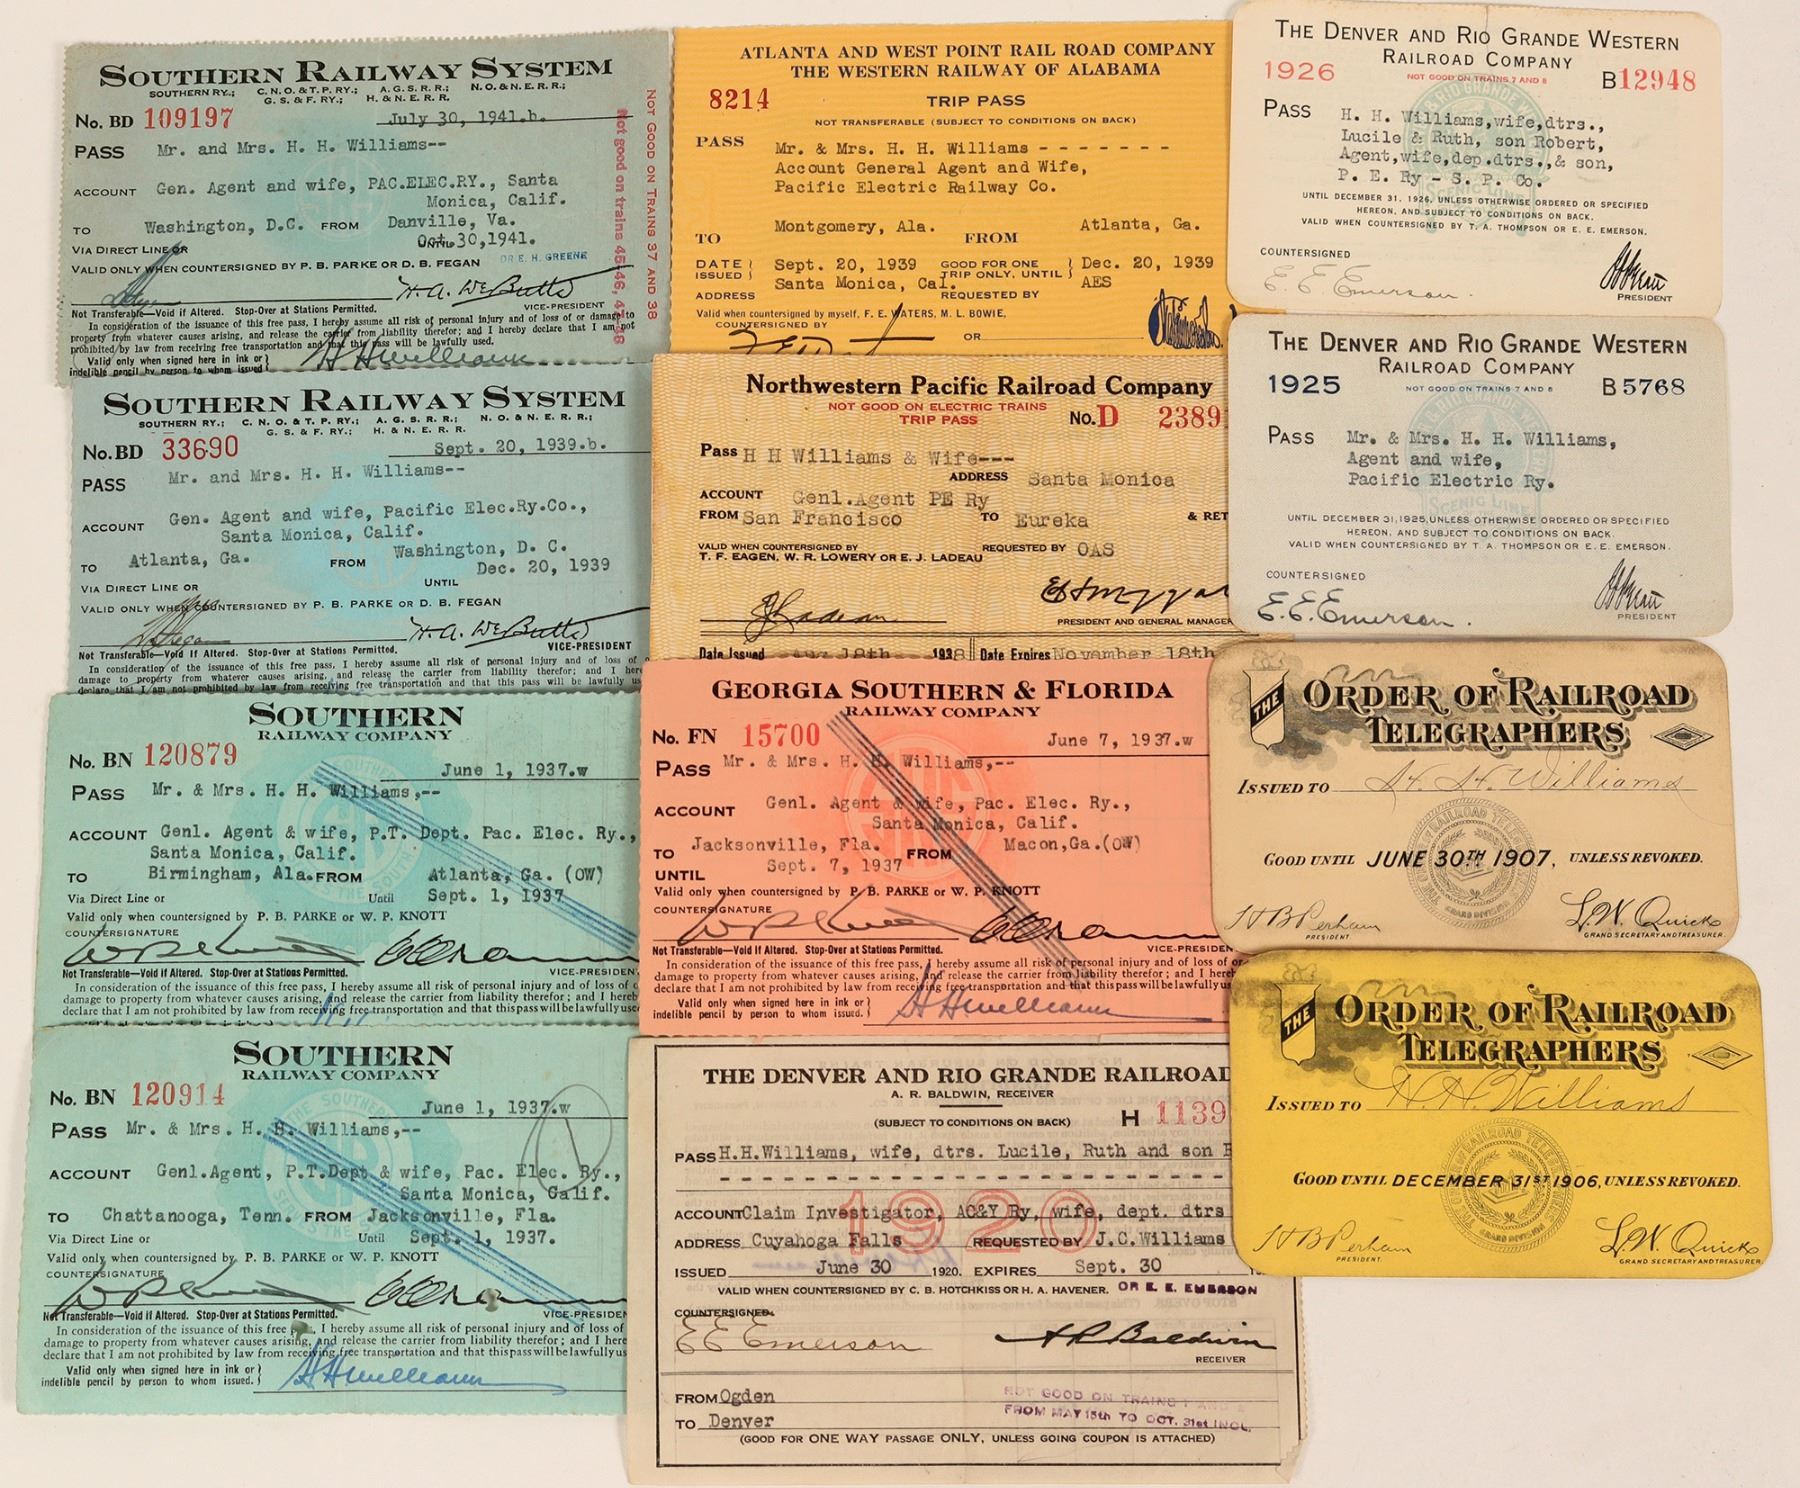 SOUTHERN RAILWAY SYSTEM
SOUTHERN RY.; C. N. O. & T. P. RY.; A. G. S. R. R.; N. O. & N. E. R. R.;
G. S. & F. RY.; H. & N. E. R. R.
No. BD 109197 July 30, 1941.b.
PASS Mr. and Mrs. H. H. Williams--
ACCOUNT Gen. Agent and wife, PAC.ELEC.RY., Santa
Monica, Calif.
TO Washington, D.C. FROM Danville, Va.
VIA DIRECT LINE OR UNTIL Oct. 30,1941.
VALID ONLY WHEN COUNTERSIGNED BY P. B. PARKE OR D. B. FEGAN OR E. H. GREENE
H. A. DeButts
Not Transferable—Void if Altered. Stop-Over at Stations Permitted. VICE-PRESIDENT
In consideration of the issuance of this free pass, I hereby assume all risk of personal injury and of loss of or damage to
property from whatever causes arising, and release the carrier from liability therefor; and I hereby declare that I am not
prohibited by law from receiving free transportation and that this pass will be lawfully used.
Valid only when signed here in ink or }
indelible pencil by person to whom issued. } H H Williams
NOT GOOD ON TRAINS 37 AND 38
Not good on trains 45-46, 47-48
SOUTHERN RAILWAY SYSTEM
SOUTHERN RY.; C. N. O. & T. P. RY.; A. G. S. R. R.; N. O. & N. E. R. R.;
G. S. & F. RY.; H. & N. E. R. R.
No. BD 33690 Sept. 20, 1939.b.
PASS Mr. and Mrs. H. H. Williams--
ACCOUNT Gen. Agent and wife, Pacific Elec.Ry.Co.,
Santa Monica, Calif.
TO Atlanta, Ga. FROM Washington, D. C.
VIA DIRECT LINE OR UNTIL Dec. 20, 1939
VALID ONLY WHEN COUNTERSIGNED BY P. B. PARKE OR D. B. FEGAN
H. A. DeButts
Not Transferable—Void if Altered. Stop-Over at Stations Permitted. VICE-PRESIDENT
In consideration of the issuance of this free pass, I hereby assume all risk of personal injury and of loss of
damage to property from whatever causes arising, and release the carrier from liability therefor; and I here
declare that I am not prohibited by law from receiving free transportation and that this pass will be lawfully
SOUTHERN
RAILWAY COMPANY
No. BN 120879 June 1, 1937.w
PASS Mr. & Mrs. H. H. Williams,--
ACCOUNT Genl. Agent & wife, P.T. Dept. Pac. Elec. Ry.,
Santa Monica, Calif.
TO Birmingham, Ala. FROM Atlanta, Ga. (OW)
Via Direct Line or Until Sept. 1, 1937
Valid only when countersigned by P. B. PARKE or W. P. KNOTT
COUNTERSIGNATURE
Not Transferable—Void if Altered. Stop-Over at Stations Permitted. VICE-PRESIDEN
In consideration of the issuance of this free pass, I hereby assume all risk of personal injury and of loss of
damage to property from whatever causes arising, and release the carrier from liability therefor; and I hereb
declare that I am not prohibited by law from receiving free transportation and that this pass will be lawfully use
SOUTHERN
RAILWAY COMPANY
No. BN 120914 June 1, 1937.w
PASS Mr. & Mrs. H. H. Williams,--
ACCOUNT Genl.Agent, P.T.Dept & wife, Pac. Elec. Ry.,
Santa Monica, Calif.
TO Chattanooga, Tenn. FROM Jacksonville, Fla.
Via Direct Line or Until Sept. 1, 1937.
Valid only when countersigned by P. B. PARKE or W. P. KNOTT
COUNTERSIGNATURE
Not Transferable—Void if Altered. Stop-Over at Stations Permitted. VICE-PRESIDEN
In consideration of the issuance of this free pass, I hereby assume all risk of personal injury and of loss of
damage to property from whatever causes arising, and release the carrier from liability therefor; and I here
declare that I am not prohibited by law from receiving free transportation and that this pass will be lawfully us
Valid only when signed here in ink or }
indelible pencil by person to whom issued. } H H Williams
ATLANTA AND WEST POINT RAIL ROAD COMPANY
THE WESTERN RAILWAY OF ALABAMA
8214 TRIP PASS
NOT TRANSFERABLE (SUBJECT TO CONDITIONS ON BACK)
PASS Mr. & Mrs. H. H. Williams - - - - - - -
Account General Agent and Wife,
Pacific Electric Railway Co.
TO Montgomery, Ala. FROM Atlanta, Ga.
DATE ISSUED } Sept. 20, 1939 GOOD FOR ONE TRIP ONLY, UNTIL } Dec. 20, 1939
ADDRESS Santa Monica, Cal. REQUESTED BY AES
Valid when countersigned by myself, F. E. WATERS, M. L. BOWIE,
COUNTERSIGNED BY OR
Northwestern Pacific Railroad Company
NOT GOOD ON ELECTRIC TRAINS
TRIP PASS No. D 2389
Pass H H Williams & Wife---
ADDRESS Santa Monica
ACCOUNT Genl.Agent PE Ry
FROM San Francisco TO Eureka & RET
VALID WHEN COUNTERSIGNED BY REQUESTED BY OAS
T. F. EAGEN, W. R. LOWERY OR E. J. LADEAU
PRESIDENT AND GENERAL MANAGER
Date Issued Aug 18th 1938 Date Expires November 18th
GEORGIA SOUTHERN & FLORIDA
RAILWAY COMPANY
No. FN 15700 June 7, 1937.w
PASS Mr. & Mrs. H. H. Williams,--
ACCOUNT Genl. Agent & wife, Pac. Elec. Ry.,
Santa Monica, Calif.
TO Jacksonville, Fla. FROM Macon,Ga.(OW)
UNTIL Sept. 7, 1937
Valid only when countersigned by P. B. PARKE or W. P. KNOTT
COUNTERSIGNATURE
Not Transferable—Void if Altered. Stop-Over at Stations Permitted. VICE-PRESIDEN
In consideration of the issuance of this free pass, I hereby assume all risk of personal injury and of loss of or
damage to property from whatever causes arising, and release the carrier from liability therefor; and I hereb
declare that I am not prohibited by law from receiving free transportation and that this pass will be lawfully us
Valid only when signed here in ink or }
indelible pencil by person to whom issued. } H H Williams
THE DENVER AND RIO GRANDE RAILROAD
A. R. BALDWIN, RECEIVER
(SUBJECT TO CONDITIONS ON BACK) H 1139
PASS H.H.Williams, wife, dtrs. Lucile, Ruth and son
1920
ACCOUNT Claim Investigator, AC&Y Ry, wife, dept. dtrs
ADDRESS Cuyahoga Falls REQUESTED BY J.C.Williams
ISSUED June 30 1920. EXPIRES Sept. 30
VALID WHEN COUNTERSIGNED BY C. B. HOTCHKISS OR H. A. HAVENER. OR E. E. EMERSON
COUNTERSIGNED
E E Emerson A R Baldwin
RECEIVER
FROM Ogden NOT GOOD ON TRAINS 1 AND 2
TO Denver FROM MAY 15th TO OCT. 31st INCL.
(GOOD FOR ONE WAY PASSAGE ONLY, UNLESS GOING COUPON IS ATTACHED)
THE DENVER AND RIO GRANDE WESTERN
RAILROAD COMPANY
1926 NOT GOOD ON TRAINS 7 AND 8 B12948
PASS H. H. Williams,wife,dtrs.,
Lucile & Ruth, son Robert,
Agent,wife,dep.dtrs.,& son,
P. E. Ry - S. P. Co.
SCENIC LINE
UNTIL DECEMBER 31, 1926, UNLESS OTHERWISE ORDERED OR SPECIFIED
HEREON, AND SUBJECT TO CONDITIONS ON BACK.
VALID WHEN COUNTERSIGNED BY T. A. THOMPSON OR E. E. EMERSON.
COUNTERSIGNED
E. E. Emerson.
PRESIDENT
THE DENVER AND RIO GRANDE WESTERN
RAILROAD COMPANY
1925 NOT GOOD ON TRAINS 7 AND 8 B5768
PASS Mr. & Mrs. H. H. Williams,
Agent and wife,
Pacific Electric Ry.
SCENIC LINE
UNTIL DECEMBER 31, 1925, UNLESS OTHERWISE ORDERED OR SPECIFIED
HEREON, AND SUBJECT TO CONDITIONS ON BACK.
VALID WHEN COUNTERSIGNED BY T. A. THOMPSON OR E. E. EMERSON.
COUNTERSIGNED
E. E. Emerson.
PRESIDENT
THE ORDER OF RAILROAD
TELEGRAPHERS
ISSUED TO H. H. Williams
GOOD UNTIL JUNE 30TH 1907, UNLESS REVOKED.
H B Perham L. W. Quick
PRESIDENT GRAND SECRETARY AND TREASURER.
THE ORDER OF RAILROAD
TELEGRAPHERS
ISSUED TO H. H. Williams
GOOD UNTIL DECEMBER 31ST 1906, UNLESS REVOKED.
H B Perham L. W. Quick
PRESIDENT. GRAND SECRETARY AND TREASURER